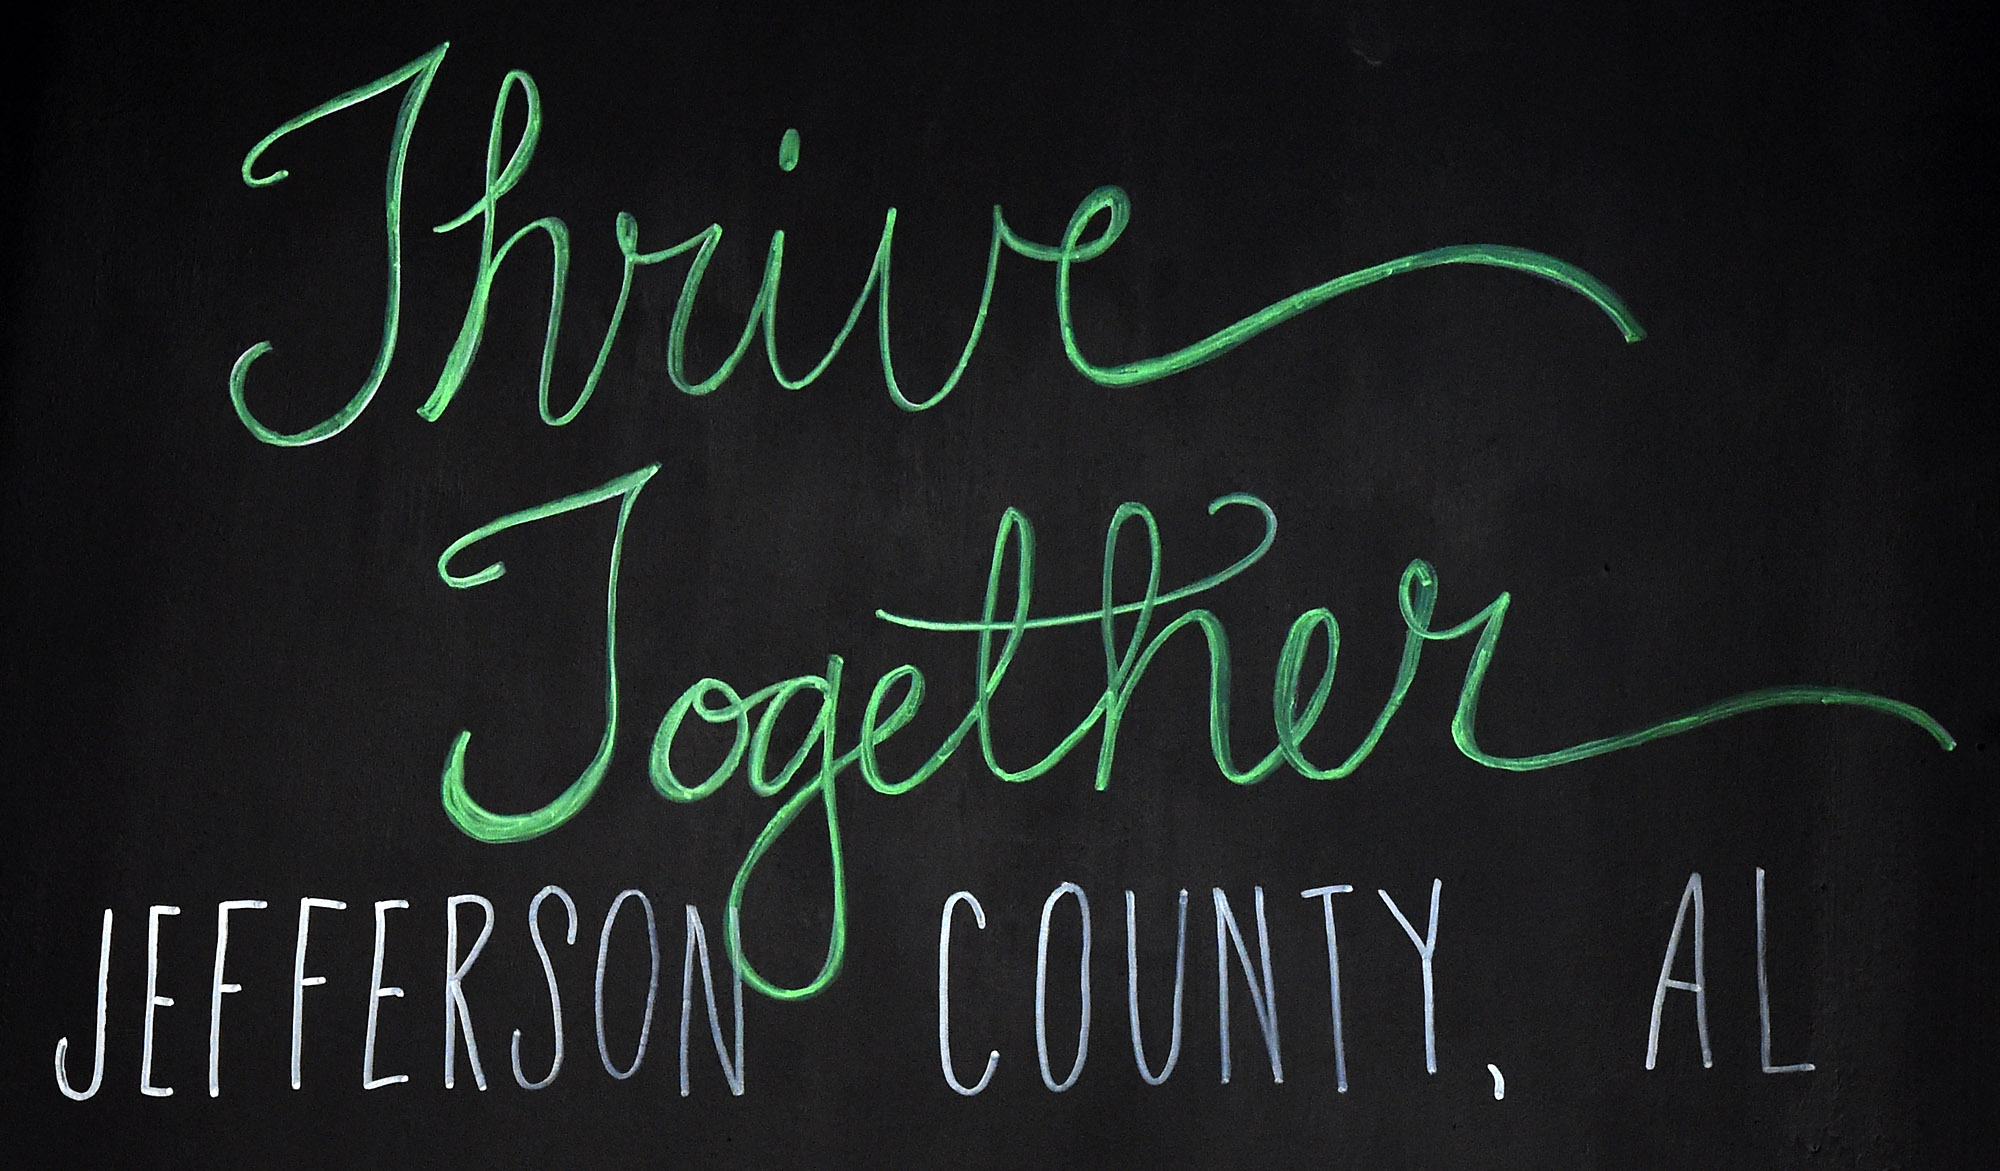 Thrive
Together
JEFFERSON COUNTY, AL